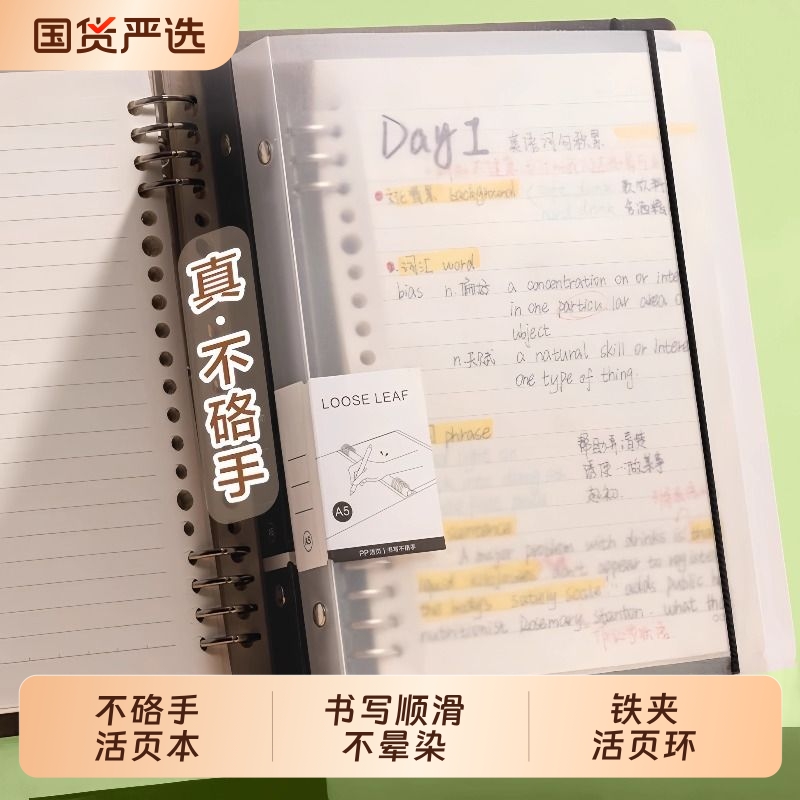 国货严选
Day 1 英语词句积累
文化背景 background
软饮料
含酒精
词汇 word
bias n.偏好 a concentration on or inte
in one particu lar area o
ubject
n.天赋 a natural skill or intere
one type of thing.
phrase
帮助弄清楚
诱使…做某事
起初
sentence
A major problem with drinks is
don't appear to register
the body's satiety scale adds public h
nutritionist Rosemary Stanton. what th
真·不硌手
LOOSE LEAF
A5
PP活页|书写不硌手
A5
不硌手
活页本
书写顺滑
不晕染
铁夹
活页环